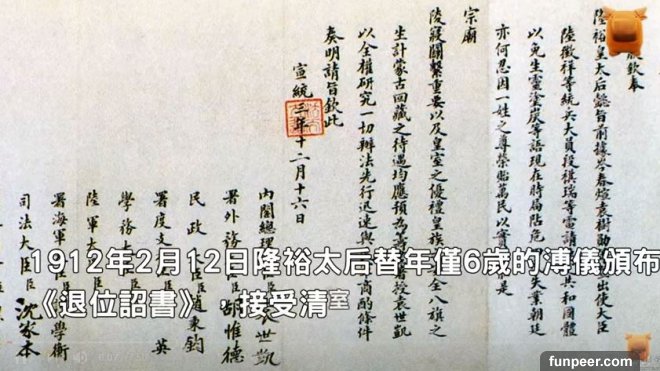 欽奉
隆裕皇太后懿旨前據岑春煊袁樹勳 出使大臣
陸徵祥等統兵大員段祺瑞等電請 共和國體
以免生靈塗炭等語現在時局阽危 失業朝廷
亦何忍因一姓之尊榮貽萬民以實 是
宗廟
陵寢關繫重要以及皇室之優禮皇族 全八旗之
生計蒙古回藏之待遇均應預為 授袁世凱
以全權研究一切辦法先行迅速與 商酌條件
奏明請旨欽此
宣統三年十二月十六日
內閣總理 袁世凱
署外務 胡惟德
民政 臣趙秉鈞
署度支 英
學務 臣
陸軍大
署海軍 臣 學衡
司法大臣沈家本
1912年2月12日隆裕太后替年僅6歲的溥儀頒布
《退位詔書》，接受清室
funpeer.com